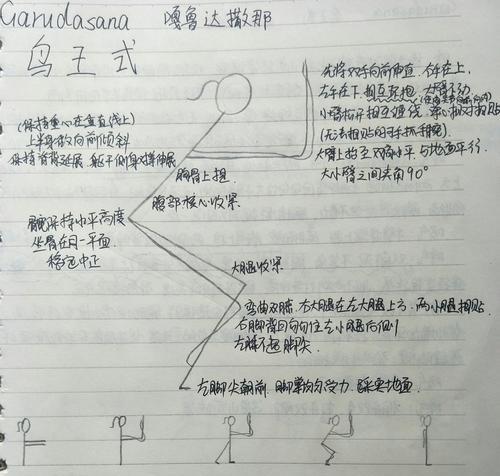 Garudasana 嘎鲁达撒那
鸟王式
先将双手向前伸直，右手在上，
左手在下，相互环抱，大臂不动
小臂抬手相互缠绕，掌心相对相贴
(无法相贴的手抓手腕)
大臂上抬至双肩水平，与地面平行，
大小臂之间夹角90°
(保持重心在垂直线上)
上半身微向前倾斜
保持脊背延展，躯干侧身对称伸展
胸骨上提
腹部核心收紧
髋保持水平高度
坐骨在同一平面
稳定中正
大腿收紧
弯曲双膝，右大腿在左大腿上方，两小腿相贴
右脚背回勾勾住左小腿后侧
左膝不超脚尖
左脚尖朝前，脚掌均匀受力，踩实地面